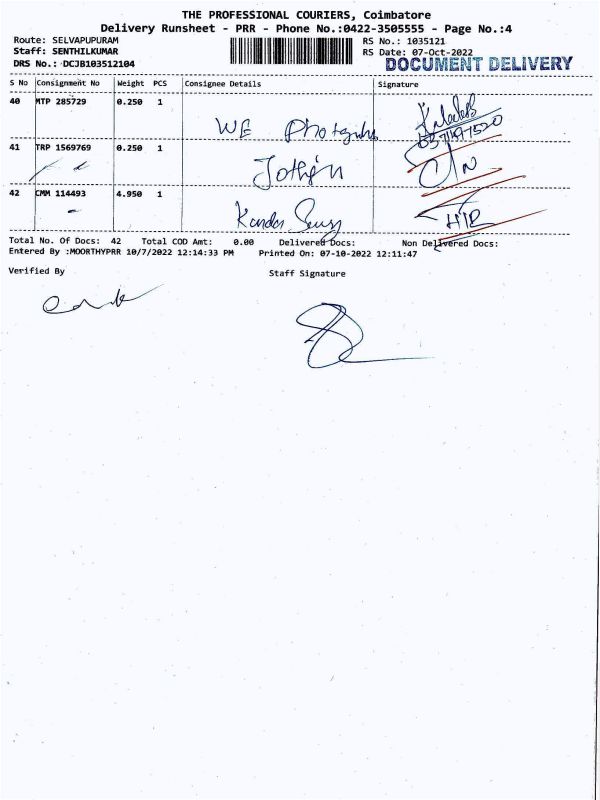 THE PROFESSIONAL COURIERS, Coimbatore
Delivery Runsheet - PRR - Phone No.:0422-3505555 - Page No.:4
Route: SELVAPUPURAM
RS No.: 1035121
Staff: SENTHILKUMAR
RS Date: 07-Oct-2022
DRS No.: DCJB103512104
DOCUMENT DELIVERY
S No Consignment No Weight PCS Consignee Details Signature
40 MTP 285729 0.250 1
WE
41 TRP 1569769 0.250 1
42 CMM 114493 4.950 1
Total No. Of Docs: 42 Total COD Amt: 0.00 Delivered Docs: Non Delivered Docs:
Entered By :MOORTHYPRR 10/7/2022 12:14:33 PM Printed On: 07-10-2022 12:11:47
Verified By Staff Signature